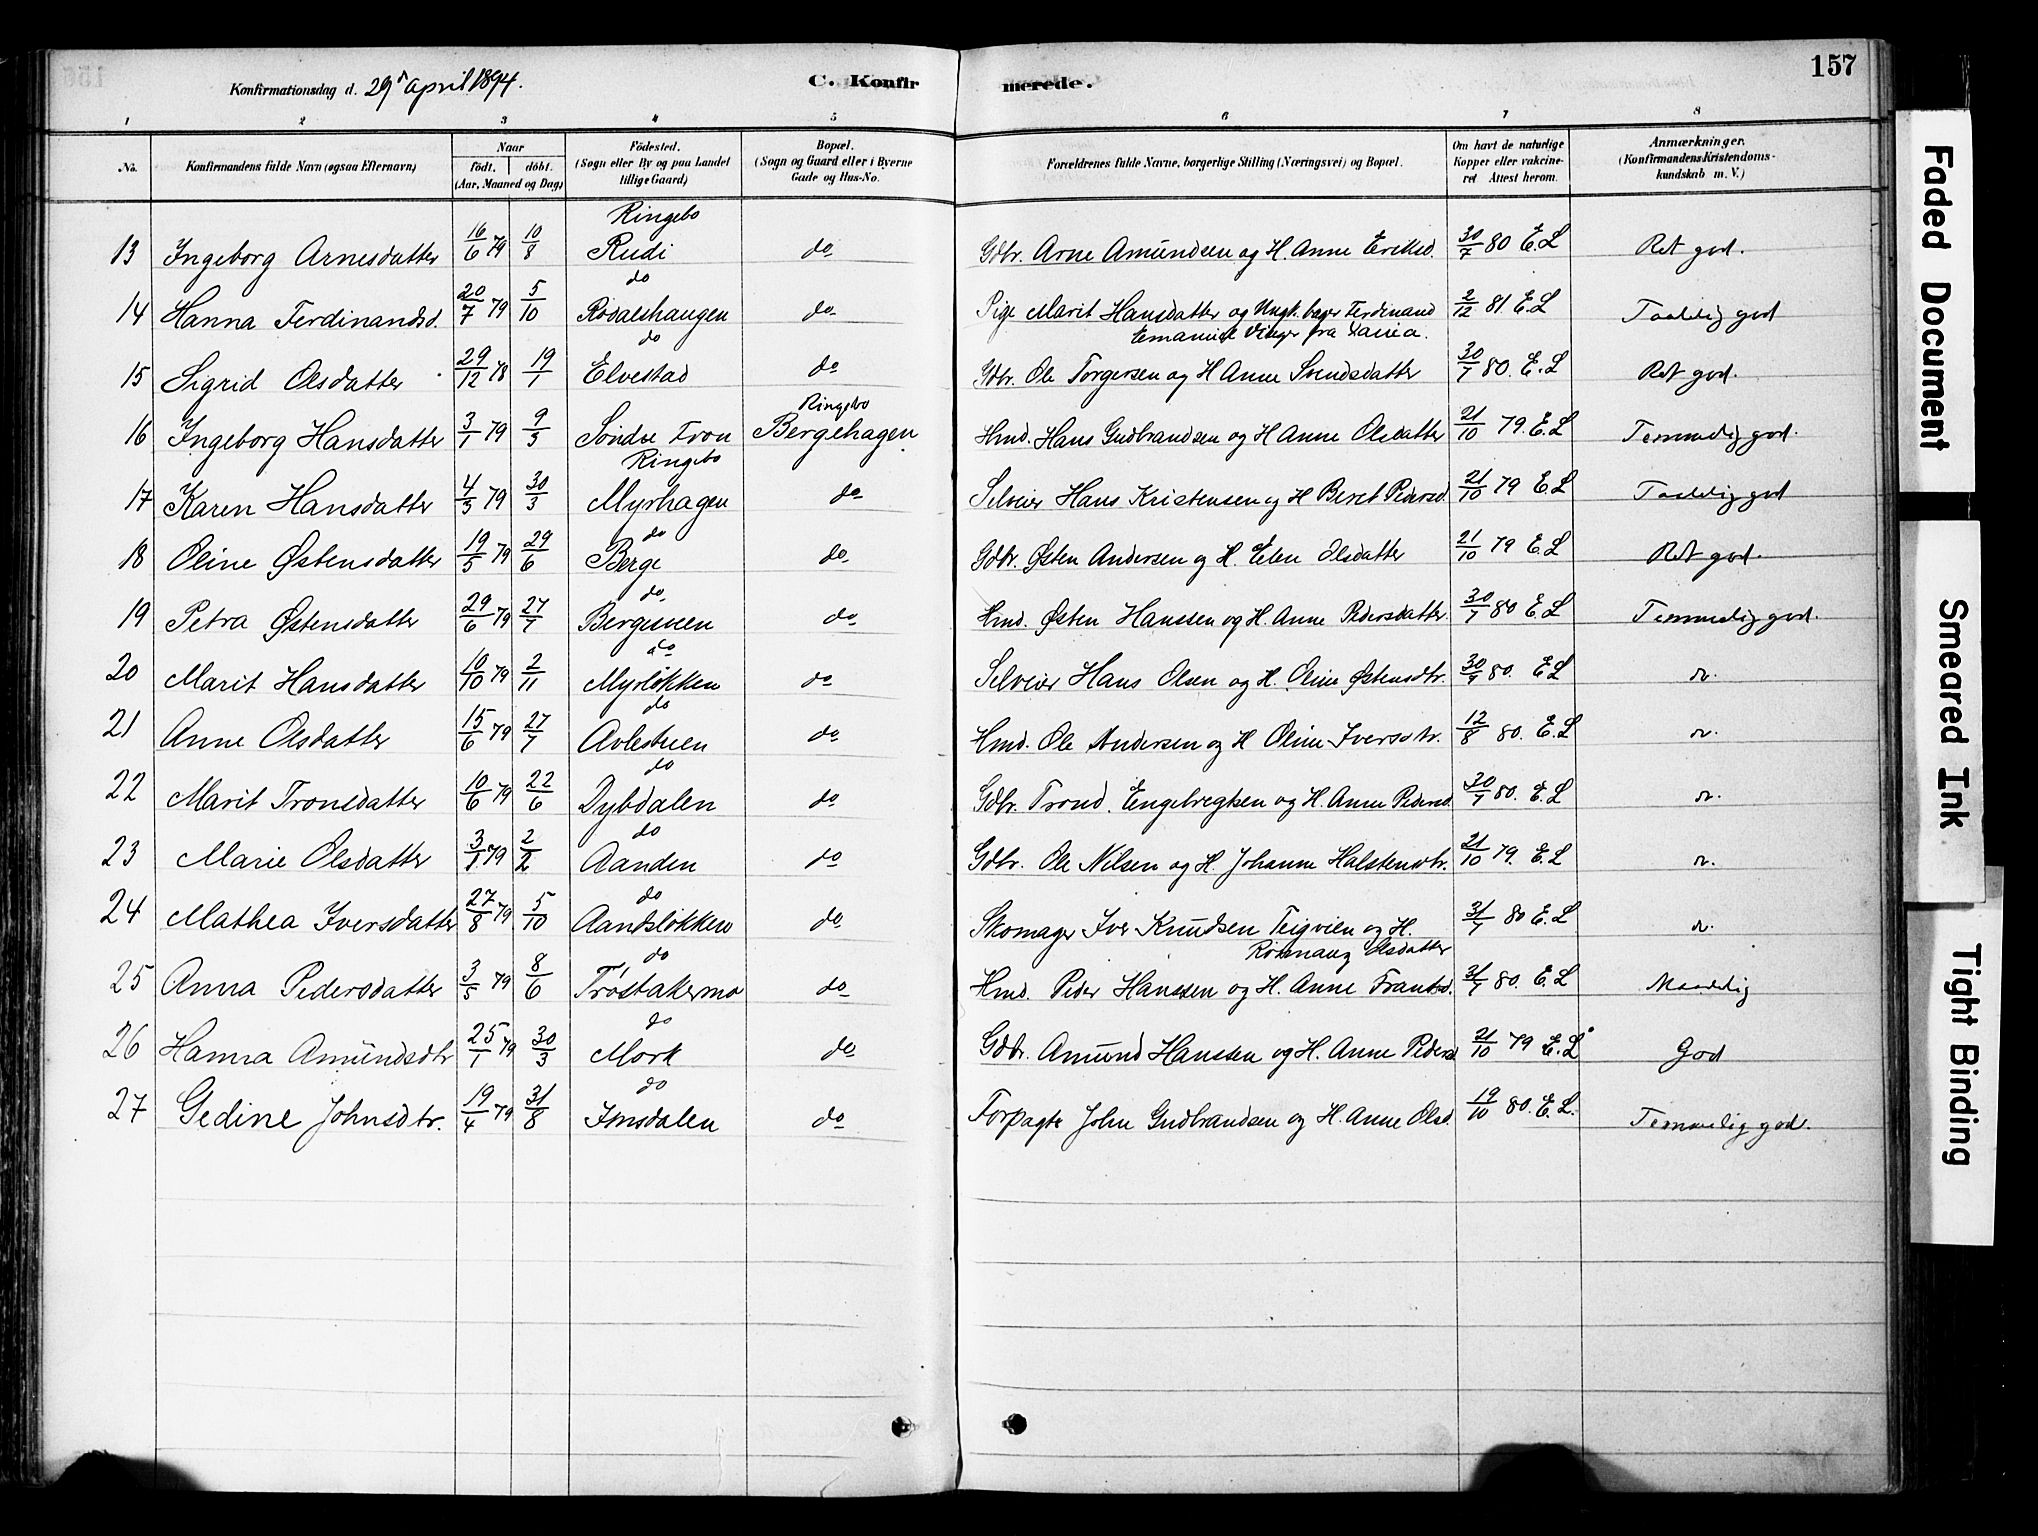 Konfirmationsdag d. 29de April 1894. C. Konfir merede. 157
1 2 3 4 5 6 7 8
No. Konfirmandens fulde Navn (ogsaa Efternavn) Naar født. døbt. (Aar, Maaned og Dag) Födested. (Sogn eller By og paa Landet tillige Gaard) Bopæl. (Sogn og Gaard eller i Byerne Gade og Hus-No. Forældrenes fulde Navne, borgerlige Stilling (Næringsvei) og Bopæl. Om havt de naturlige Kopper eller vakcineret Attest herom. Anmærkninger. (Konfirmandens Kristendomskundskab m. V.)
Ringebo
13 Ingeborg Arnesdatter 16/6 79 10/8 Rudi do Gdbr. Arne Amundsen og H. Anne Eriksd. 30/7 80 E.L Ret god.
do
14 Hanna Ferdinandsd. 20/7 79 5/10 Rødalshaugen do Pige Marit Hansdatter og Ungk. Ferdinand 2/12 81 E.L Taalelig god
Emanuel fra
do
15 Sigrid Olsdatter 29/12 78 19/1 Elvestad do Gdbr. Ole Torgersen og H Anne Svendsdatter 30/7 80. E.L Ret god.
Ringebo
16 Ingeborg Hansdatter 3/1 79 9/3 Søndre Fron Bergehagen Hmd. Hans Gudbrandsen og H Anne Olsdatter 21/10 79. E.L Temmelig god.
Ringebo
17 Karen Hansdatter 4/3 79 30/3 Myrhagen do Selveier Hans Kristensen og H Beret Pedersd. 21/10 79 E.L Taalelig god
do
18 Oline Østensdatter 19/5 79 29/6 Berge do Gdbr. Østen Andersen og H. Elen Olsdatter 21/10 79 E.L Ret god.
do
19 Petra Østensdatter 29/6 79 27/7 Bergsveen do Hmd. Østen Hanssen og H. Anne Pedersdatter. 30/7 80 E.L Temmelig god.
do
20 Marit Hansdatter 10/10 79 2/11 Myrløkken do Selveier Hans Olsen og H. Oline Østensdtr. 30/7 80. E.L do.
do
21 Anne Olsdatter 15/6 79 27/7 Avlestuen do Hmd. Ole Andersen og H Oline Iversdtr. 12/8 80. E.L do.
do
22 Marit Tronsdatter 10/6 79 22/6 Dybdalen do Gdbr. Trond Engebregtsen og H. Anne Pedersd. 30/7 80. E.L do.
do
23 Marie Olsdatter 3/1 79 2/2 Aanden do Gdbr. Ole Nilsen og H. Johanne Halstensdtr. 21/10 79. E.L do.
do
24 Mathea Iversdatter 27/8 79 5/10 Aandsløkken do Skomager Iver Knudsen Teigvien og H. 31/7 80 E.L do.
Rønnaug Olsdatter
do
25 Anna Pedersdatter 3/5 79 8/6 Trøstakermo do Hmd. Peder Hanssen og H. Anne Frantsd. 31/7 80. E.L Maadelig
do
26 Hanna Amundsdtr 25/1 79 30/3 Mork do Gdbr. Amund Hanssen og H. Anne Pedersd 21/10 79 E.L God
do
27 Gedine Johnsdtr. 19/4 79 31/8 Imsdalen do Forpagter John Gudbrandsen og H. Anne Olsd. 19/10 80. E.L. Temmelig god.
Faded Document
Smeared Ink
Tight Binding